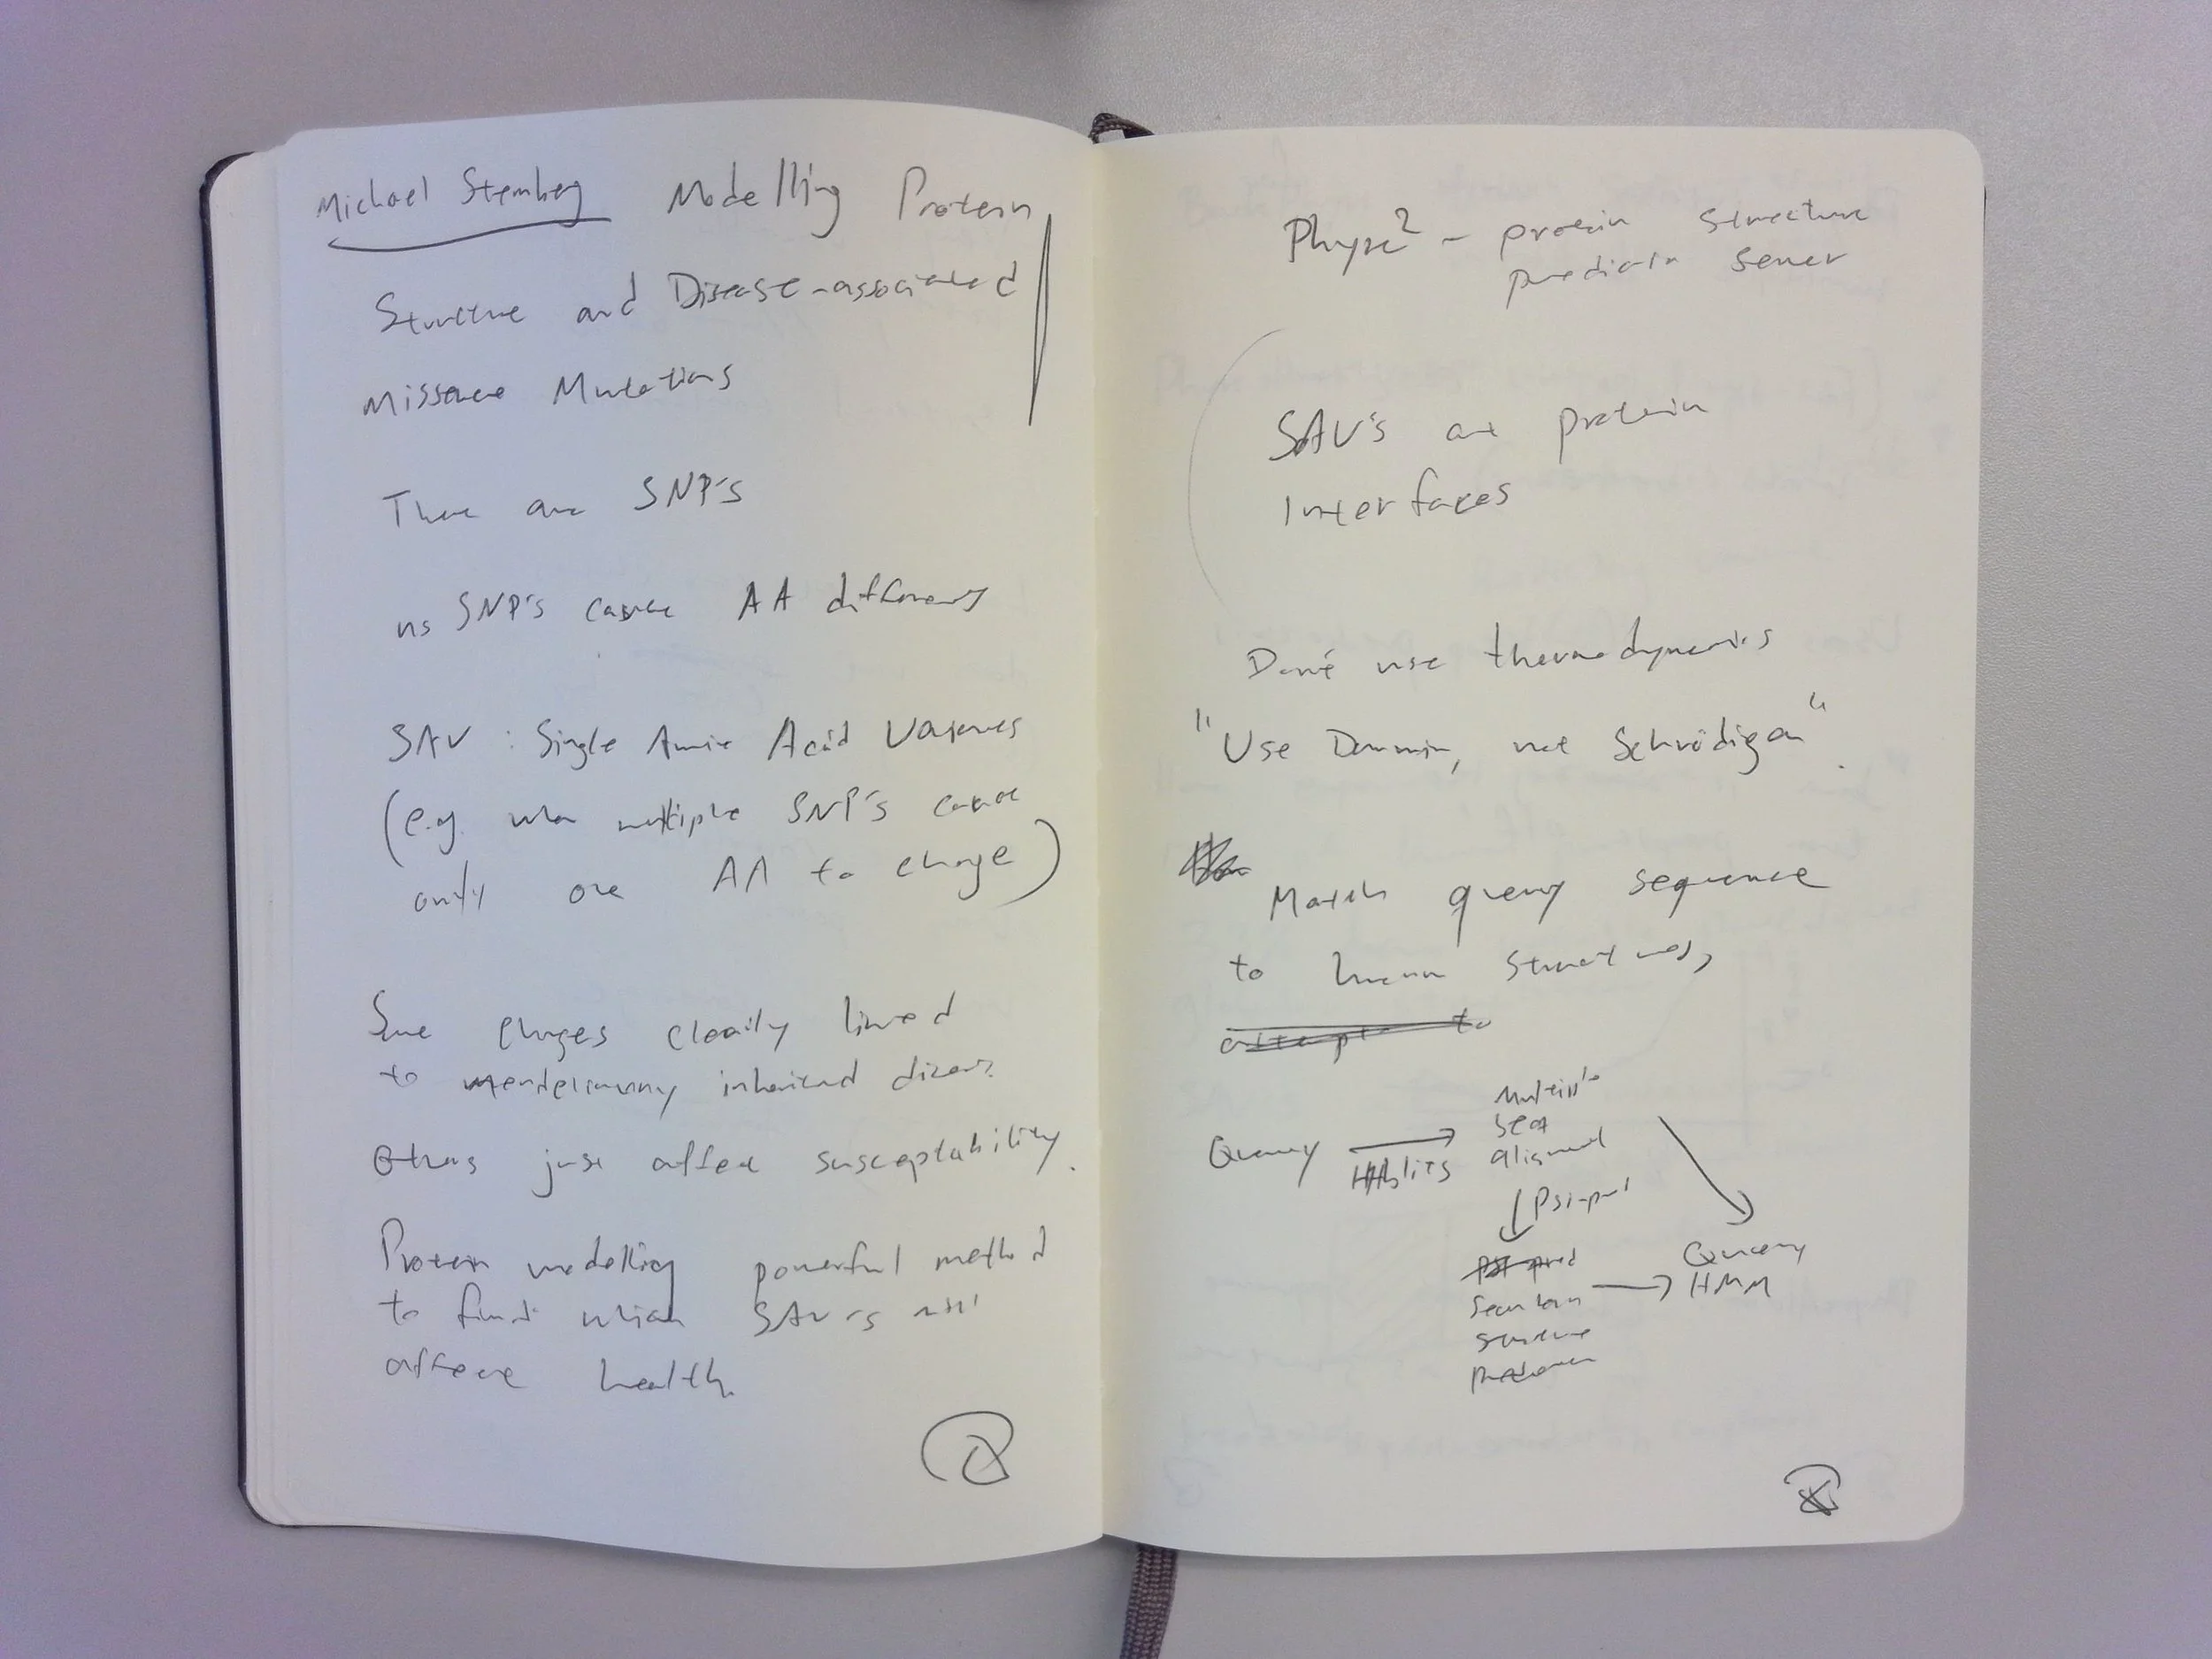 Michael Sternberg Modelling Protein
Structure and Disease-associated
Missense Mutations
There are SNP's
ns SNP's cause AA differences
SAV : Single Amino Acid Variants
(e.g. when multiple SNP's cause
only one AA to change)
Some changes clearly linked
to mendelianny inherited disease.
Others just affect susceptability.
Protein modelling powerful method
to find which SAV's will
affect health.
Phyre2 - protein structure
prediction server
SAV's at protein
Interfaces
Don't use thermodynamics
"Use Darwin, not Schrödinger".
Match query sequence
to known structures,
attempt to
Query → Multiple
Seq
HHblits alignment
↓ Psi-pred
PSI pred
Secondary → Query
HMM
structure
prediction